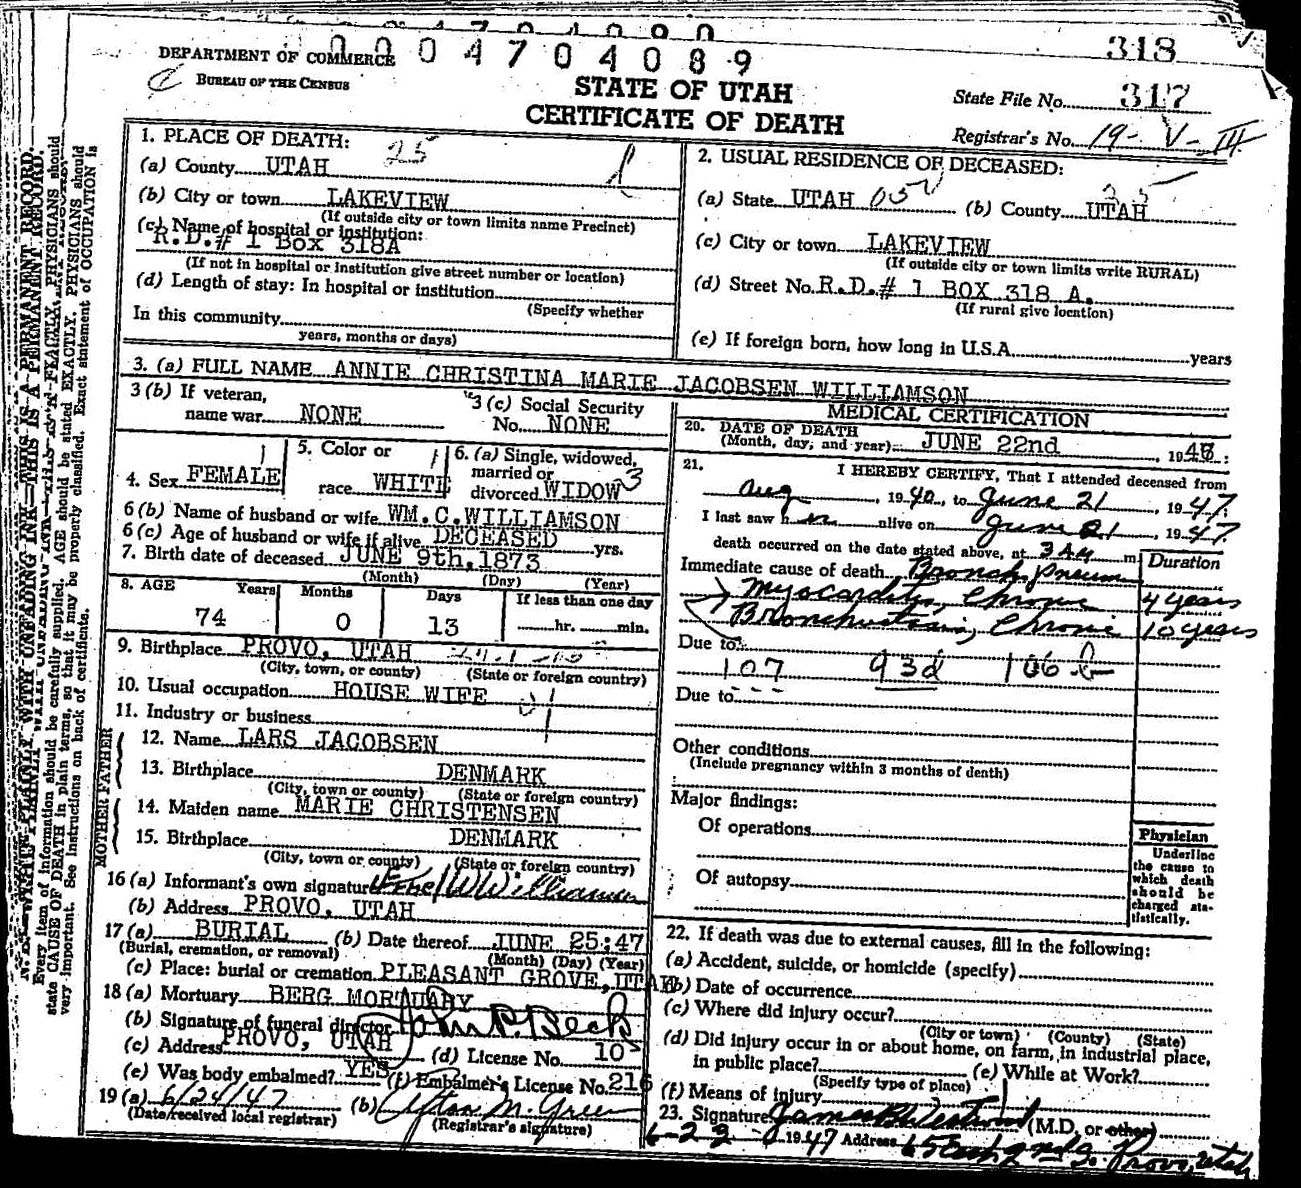 318
DEPARTMENT OF COMMERCE
0004704089
BUREAU OF THE CENSUS
STATE OF UTAH
CERTIFICATE OF DEATH
State File No. 317
Registrar's No. 19- V-III
1. PLACE OF DEATH: 25
(a) County UTAH
(b) City or town LAKEVIEW
(If outside city or town limits name Precinct)
(c) Name of hospital or institution:
R.D.# 1 Box 318A
(If not in hospital or institution give street number or location)
(d) Length of stay: In hospital or institution
(Specify whether
In this community
years, months or days)
2. USUAL RESIDENCE OF DECEASED:
(a) State UTAH (b) County UTAH
(c) City or town LAKEVIEW
(If outside city or town limits write RURAL)
(d) Street No. R.D.# 1 BOX 318 A.
(If rural give location)
(e) If foreign born, how long in U.S.A. years
3. (a) FULL NAME ANNIE CHRISTINA MARIE JACOBSEN WILLIAMSON
3 (b) If veteran,
name war NONE
3 (c) Social Security
No. NONE
4. Sex FEMALE
5. Color or
race WHITE
6. (a) Single, widowed,
married or
divorced WIDOW 3
6 (b) Name of husband or wife WM.C.WILLIAMSON
6 (c) Age of husband or wife if alive DECEASED yrs.
7. Birth date of deceased JUNE 9th, 1873
(Month) (Day) (Year)
8. AGE Years Months Days If less than one day
74 0 13 hr. min.
9. Birthplace PROVO, UTAH
(City, town, or county) (State or foreign country)
10. Usual occupation HOUSE WIFE
11. Industry or business
FATHER
12. Name LARS JACOBSEN
13. Birthplace DENMARK
(City, town or county) (State or foreign country)
MOTHER
14. Maiden name MARIE CHRISTENSEN
15. Birthplace DENMARK
(City, town or county) (State or foreign country)
16 (a) Informant's own signature W Williamson
(b) Address PROVO, UTAH
17 (a) BURIAL (b) Date thereof JUNE 25:47
(Burial, cremation, or removal) (Month) (Day) (Year)
(c) Place: burial or cremation PLEASANT GROVE, UTAH
18 (a) Mortuary BERG MORTUARY
(b) Signature of funeral director John P. Beck
(c) Address PROVO, UTAH (d) License No. 10
(e) Was body embalmed? YES (f) Embalmer's License No. 216
19 (a) 6/24/47 (b) Afton M. Green
(Date received local registrar) (Registrar's signature)
MEDICAL CERTIFICATION
20. DATE OF DEATH
(Month, day, and year) JUNE 22nd, 194
21. I HEREBY CERTIFY, That I attended deceased from
Aug, 1940, to June 21, 1947.
I last saw h alive on June 21, 1947
death occurred on the date stated above, at 3 AM m.
Duration
Immediate cause of death Bronch. pneum
Myocarditis, Chronic 4 years
Bronchiectasis, Chronic 10 years
Due to
107 93d 106 b
Due to
Other conditions
(Include pregnancy within 3 months of death)
Major findings:
Of operations
Of autopsy
Physician
Underline
the cause to
which death
should be
charged sta-
tistically.
22. If death was due to external causes, fill in the following:
(a) Accident, suicide, or homicide (specify)
(b) Date of occurrence
(c) Where did injury occur?
(City or town) (County) (State)
(d) Did injury occur in or about home, on farm, in industrial place,
in public place? (e) While at Work?
(Specify type of place)
(f) Means of injury
23. Signature James B Westwood (M.D. or other)
6-23 1947 Address 65 East 2nd S. Provo, Utah
Every item of information should be carefully supplied. AGE should be stated EXACTLY. PHYSICIANS should
state CAUSE OF DEATH in plain terms, so that it may be properly classified. Exact statement of OCCUPATION is
very important. See instructions on back of certificate.